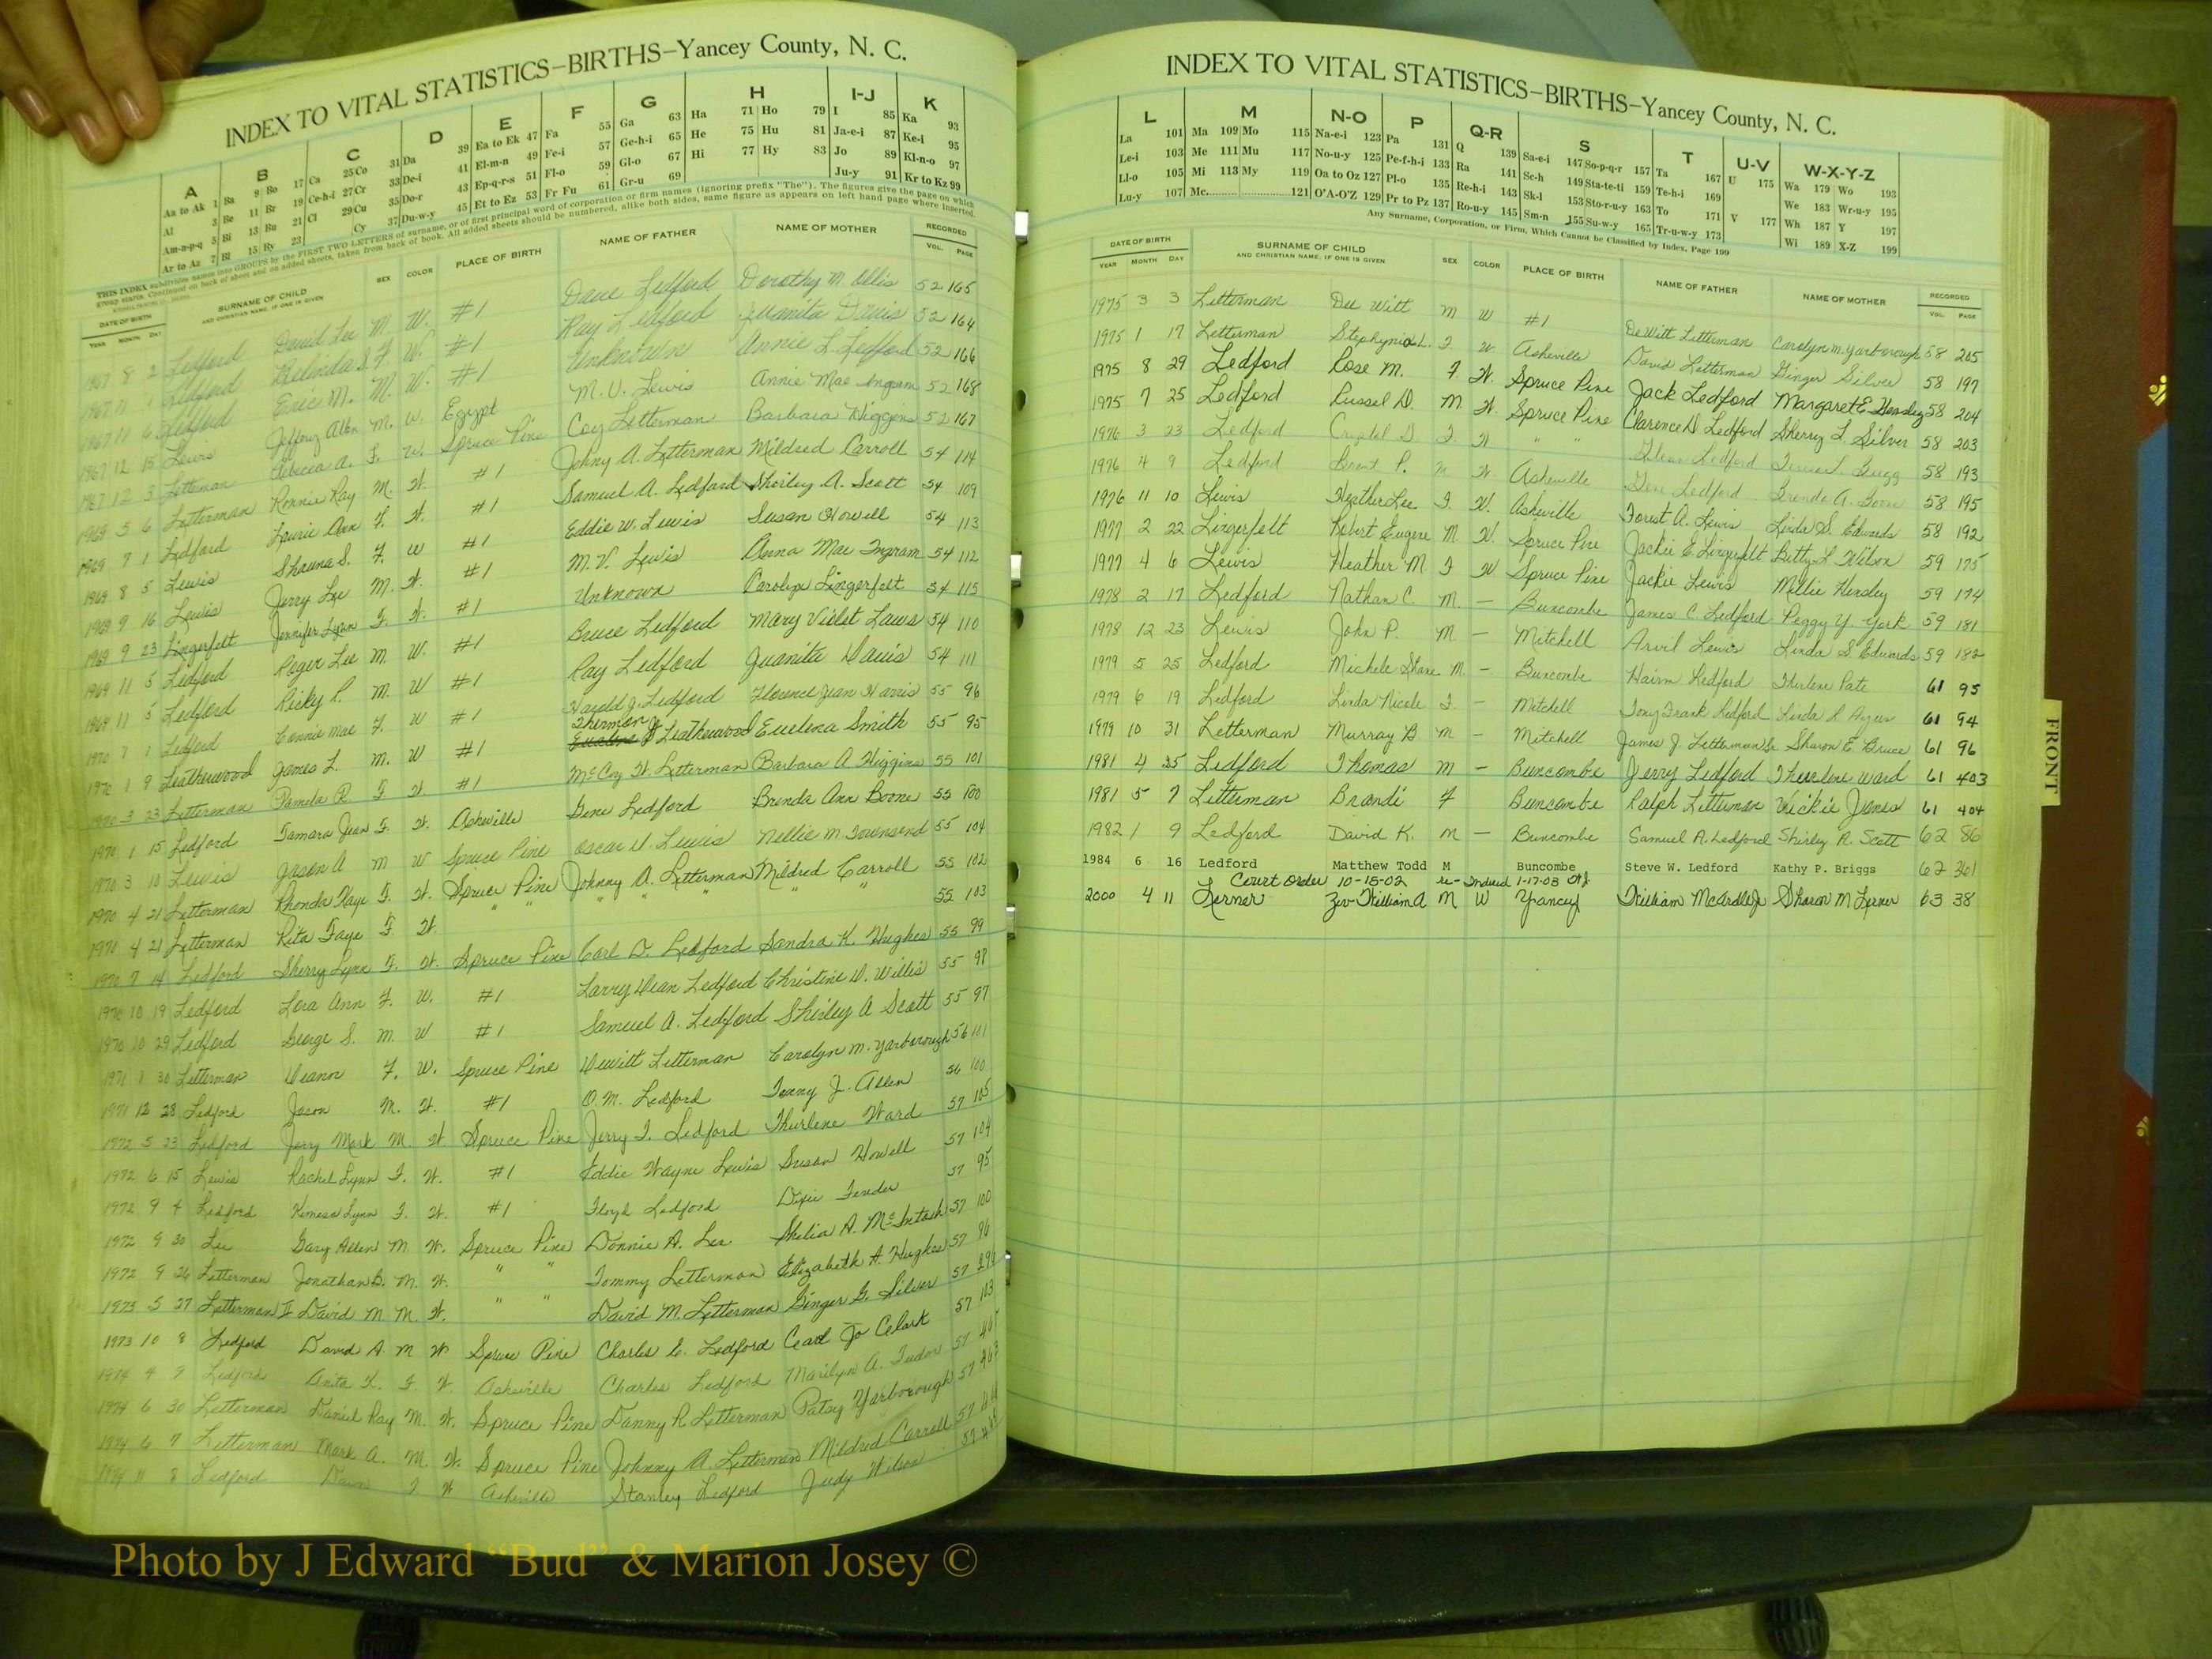 INDEX TO VITAL STATISTICS–BIRTHS–Yancey County, N. C.
A B C D E F G H I-J K
Aa to Ak 1 Ba 9 Bo 17 Ca 25 Co 31 Da 39 Ea to Ek 47 Fa 55 Ga 63 Ha 71 Ho 79 I 85 Ka 93
Al 3 Be 11 Br 19 Ce-h-i 27 Cr 33 De-i 41 El-m-n 49 Fe-i 57 Ge-h-i 65 He 75 Hu 81 Ja-e-i 87 Ke-i 95
Am-n-p-q 5 Bi 13 Bu 21 Cl 29 Cu 35 Do-r 43 Ep-q-r-s 51 Fl-o 59 Gl-o 67 Hi 77 Hy 83 Jo 89 Kl-n-o 97
Ar to Az 7 Bl 15 By 23 Cy 37 Du-w-y 45 Et to Ez 53 Fr Fu 61 Gr-u 69 Ju-y 91 Kr to Kz 99
THIS INDEX subdivides names into GROUPS by the FIRST TWO LETTERS of surname, or of first principal word of corporation or firm names (ignoring prefix "The"). The figures give the page on which
group starts. Continued on back of sheet and on added sheets, taken from back of book. All added sheets should be numbered, alike both sides, same figure as appears on left hand page where inserted.
DATE OF BIRTH SURNAME OF CHILD SEX COLOR PLACE OF BIRTH NAME OF FATHER NAME OF MOTHER RECORDED
YEAR MONTH DAY AND CHRISTIAN NAME, IF ONE IS GIVEN VOL. PAGE
1967 8 2 Ledford David Lee M. W. #1 Dave Ledford Dorothy M. Ollis 52 165
1967 11 1 Ledford Belinda S F. W. #1 Ray Ledford Juanita Davis 52 164
1967 11 6 Ledford Eric M. M. W. #1 Unknown Annie L. Ledford 52 166
1967 12 15 Lewis Jeffrey Allen M. W. Egypt M. V. Lewis Annie Mae Ingram 52 168
1967 12 3 Letterman Rebecca A. F. W. Spruce Pine Coy Letterman Barbara Higgins 52 167
1969 5 6 Letterman Ronnie Ray M. W. #1 Johny A. Letterman Mildred Carroll 54 114
1969 7 1 Ledford Laurie Ann F. W. #1 Samuel A. Ledford Shirley A. Scott 54 109
1969 8 5 Lewis Shauna S. F. W #1 Eddie W. Lewis Susan Howell 54 113
1969 9 16 Lewis Jerry Lee M. W. #1 M. V. Lewis Anna Mae Ingram 54 112
1969 9 23 Lingerfelt Jennifer Lynn F. W. #1 Unknown Carolyn Lingerfelt 54 115
1969 11 5 Ledford Roger Lee M. W. #1 Bruce Ledford Mary Violet Laws 54 110
1969 11 5 Ledford Ricky R. M. W #1 Ray Ledford Juanita Davis 54 111
1970 7 1 Ledford Connie Mae F. W #1 Harold J. Ledford Florence Jean Harris 55 96
1970 1 9 Leatherwood James L. M. W #1 Therman J. Leatherwood Euelena Smith 55 95
1970 3 23 Letterman Pamela R F W. #1 McCoy H. Letterman Barbara A Higgins 55 101
1970 1 15 Ledford Tamara Jean F. W. Asheville Gene Ledford Brenda Ann Boone 55 100
1970 3 10 Lewis Jason A M W Spruce Pine Oscar D. Lewis Nellie M Townsend 55 104
1970 4 21 Letterman Rhonda Kaye F. W. Spruce Pine Johnny A. Letterman Mildred Carroll 55 102
1970 4 21 Letterman Rita Faye F. W. " " " " " " 55 103
1970 7 14 Ledford Sherry Lynn F. W. Spruce Pine Carl D. Ledford Sandra K. Hughes 55 99
1970 10 19 Ledford Lora Ann F. W. #1 Larry Dean Ledford Christine D. Willis 55 98
1970 10 29 Ledford George S. M. W #1 Samuel A. Ledford Shirley A Scott 55 97
1971 1 30 Letterman Deann F. W. Spruce Pine Dewitt Letterman Carolyn M. Yarborough 56 101
1971 12 28 Ledford Jason M. W. #1 O. M. Ledford J. Allen 56 100
1972 5 23 Ledford Jerry Mark M. W Spruce Pine Jerry T. Ledford Thurlene Ward 57 105
1972 6 15 Lewis Rachel Lynn F. W. #1 Eddie Wayne Lewis Susan Howell 57 104
1972 9 4 Ledford Lynn F. W. #1 Floyd Ledford Dixie 57 95
1972 9 30 Lee Gary Allen M. W. Spruce Pine Donnie A. Lee Shelia A. McIntosh 57 100
1972 9 26 Letterman Jonathan B. M. W. " " Tommy Letterman Elizabeth A. Hughes 57 96
1973 5 27 Letterman II David M M. W. " " David M. Letterman Ginger G. Silver 57
1973 10 8 Ledford David A. M W Spruce Pine Charles E. Ledford Carol Jo Clark 57 113
1974 4 9 Ledford Anita F. W. Asheville Charles Ledford Marilyn A. Tudor 57
1974 6 30 Letterman Daniel Ray M. W. Spruce Pine Danny R Letterman Patsy Yarborough 57 463
1974 6 7 Letterman Mark A. M. W. Spruce Pine Johnny A. Letterman Mildred Carroll 57
1974 11 8 Ledford Dawn F W Asheville Stanley Ledford Judy Wilson 57
INDEX TO VITAL STATISTICS–BIRTHS–Yancey County, N. C.
L M N-O P Q-R S T U-V W-X-Y-Z
La 101 Ma 109 Mo 115 Na-e-i 123 Pa 131 Q 139 Sa-e-i 147 So-p-q-r 157 Ta 167 U 175 Wa 179 Wo 193
Le-i 103 Me 111 Mu 117 No-u-y 125 Pe-f-h-i 133 Ra 141 Sc-h 149 Sta-te-ti 159 Te-h-i 169 We 183 Wr-u-y 195
Ll-o 105 Mi 113 My 119 Oa to Oz 127 Pl-o 135 Re-h-i 143 Sk-l 153 Sto-r-u-y 163 To 171 V 177 Wh 187 Y 197
Lu-y 107 Mc 121 O'A-O'Z 129 Pr to Pz 137 Ro-u-y 145 Sm-n 155 Su-w-y 165 Tr-u-w-y 173 Wi 189 X-Z 199
Any Surname, Corporation, or Firm, Which Cannot be Classified by Index, Page 199
DATE OF BIRTH SURNAME OF CHILD SEX COLOR PLACE OF BIRTH NAME OF FATHER NAME OF MOTHER RECORDED
YEAR MONTH DAY AND CHRISTIAN NAME, IF ONE IS GIVEN VOL. PAGE
1975 3 3 Letterman Dee Witt M W #1 DeWitt Letterman Carolyn M. Yarborough 58 205
1975 1 17 Letterman L. F. W Asheville David Letterman Ginger Silver 58 197
1975 8 29 Ledford Rose M. F W. Spruce Pine Jack Ledford Margaret E Hensley 58 204
1975 7 25 Ledford Russel D. M. W. Spruce Pine Clarence D Ledford Sherry L. Silver 58 203
1976 3 23 Ledford Crystal D F. W " " Ledford 58 193
1976 4 9 Ledford Brent P. M W. Asheville Gene Ledford Brenda A. Boone 58 195
1976 11 10 Lewis Heather Lee F. W. Asheville Forest A. Lewis Linda S. Edwards 58 192
1977 2 22 Lingerfelt Robert Eugene M W. Spruce Pine Jackie E Lingerfelt Betty L Wilson 59 175
1977 4 6 Lewis Heather M F W Spruce Pine Jackie Lewis Millie Hensley 59 174
1978 2 17 Ledford Nathan C. M. — Buncombe James C Ledford Peggy Y. York 59 181
1978 12 23 Lewis John P. M — Mitchell Arvil Lewis Linda S Edwards 59 182
1979 5 25 Ledford Michele Shane M. — Buncombe Hairm Ledford Thurlene Pate 61 95
1979 6 19 Ledford Linda Nicole F. — Mitchell Tony Frank Ledford Linda L Ayers 61 94
1979 10 31 Letterman Murray B M — Mitchell James J. Letterman Sr. Sharon E. Bruce 61 96
1981 4 25 Ledford Thomas M — Buncombe Jerry Ledford Thurlene Ward 61 403
1981 5 7 Letterman Brandi F Buncombe Ralph Letterman Vickie Jones 61 404
1982 1 9 Ledford David K. M — Buncombe Samuel A. Ledford Shirley A. Scott 62 86
1984 6 16 Ledford Matthew Todd M Buncombe Steve W. Ledford Kathy P. Briggs 62 361
Court Order 10-15-02 re-Indexed 1-17-03
2000 4 11 Lerner Zev William A M W Yancey William McArdle Jr Sharon M Lerner 63 38
FRONT
Photo by J Edward “Bud” & Marion Josey ©